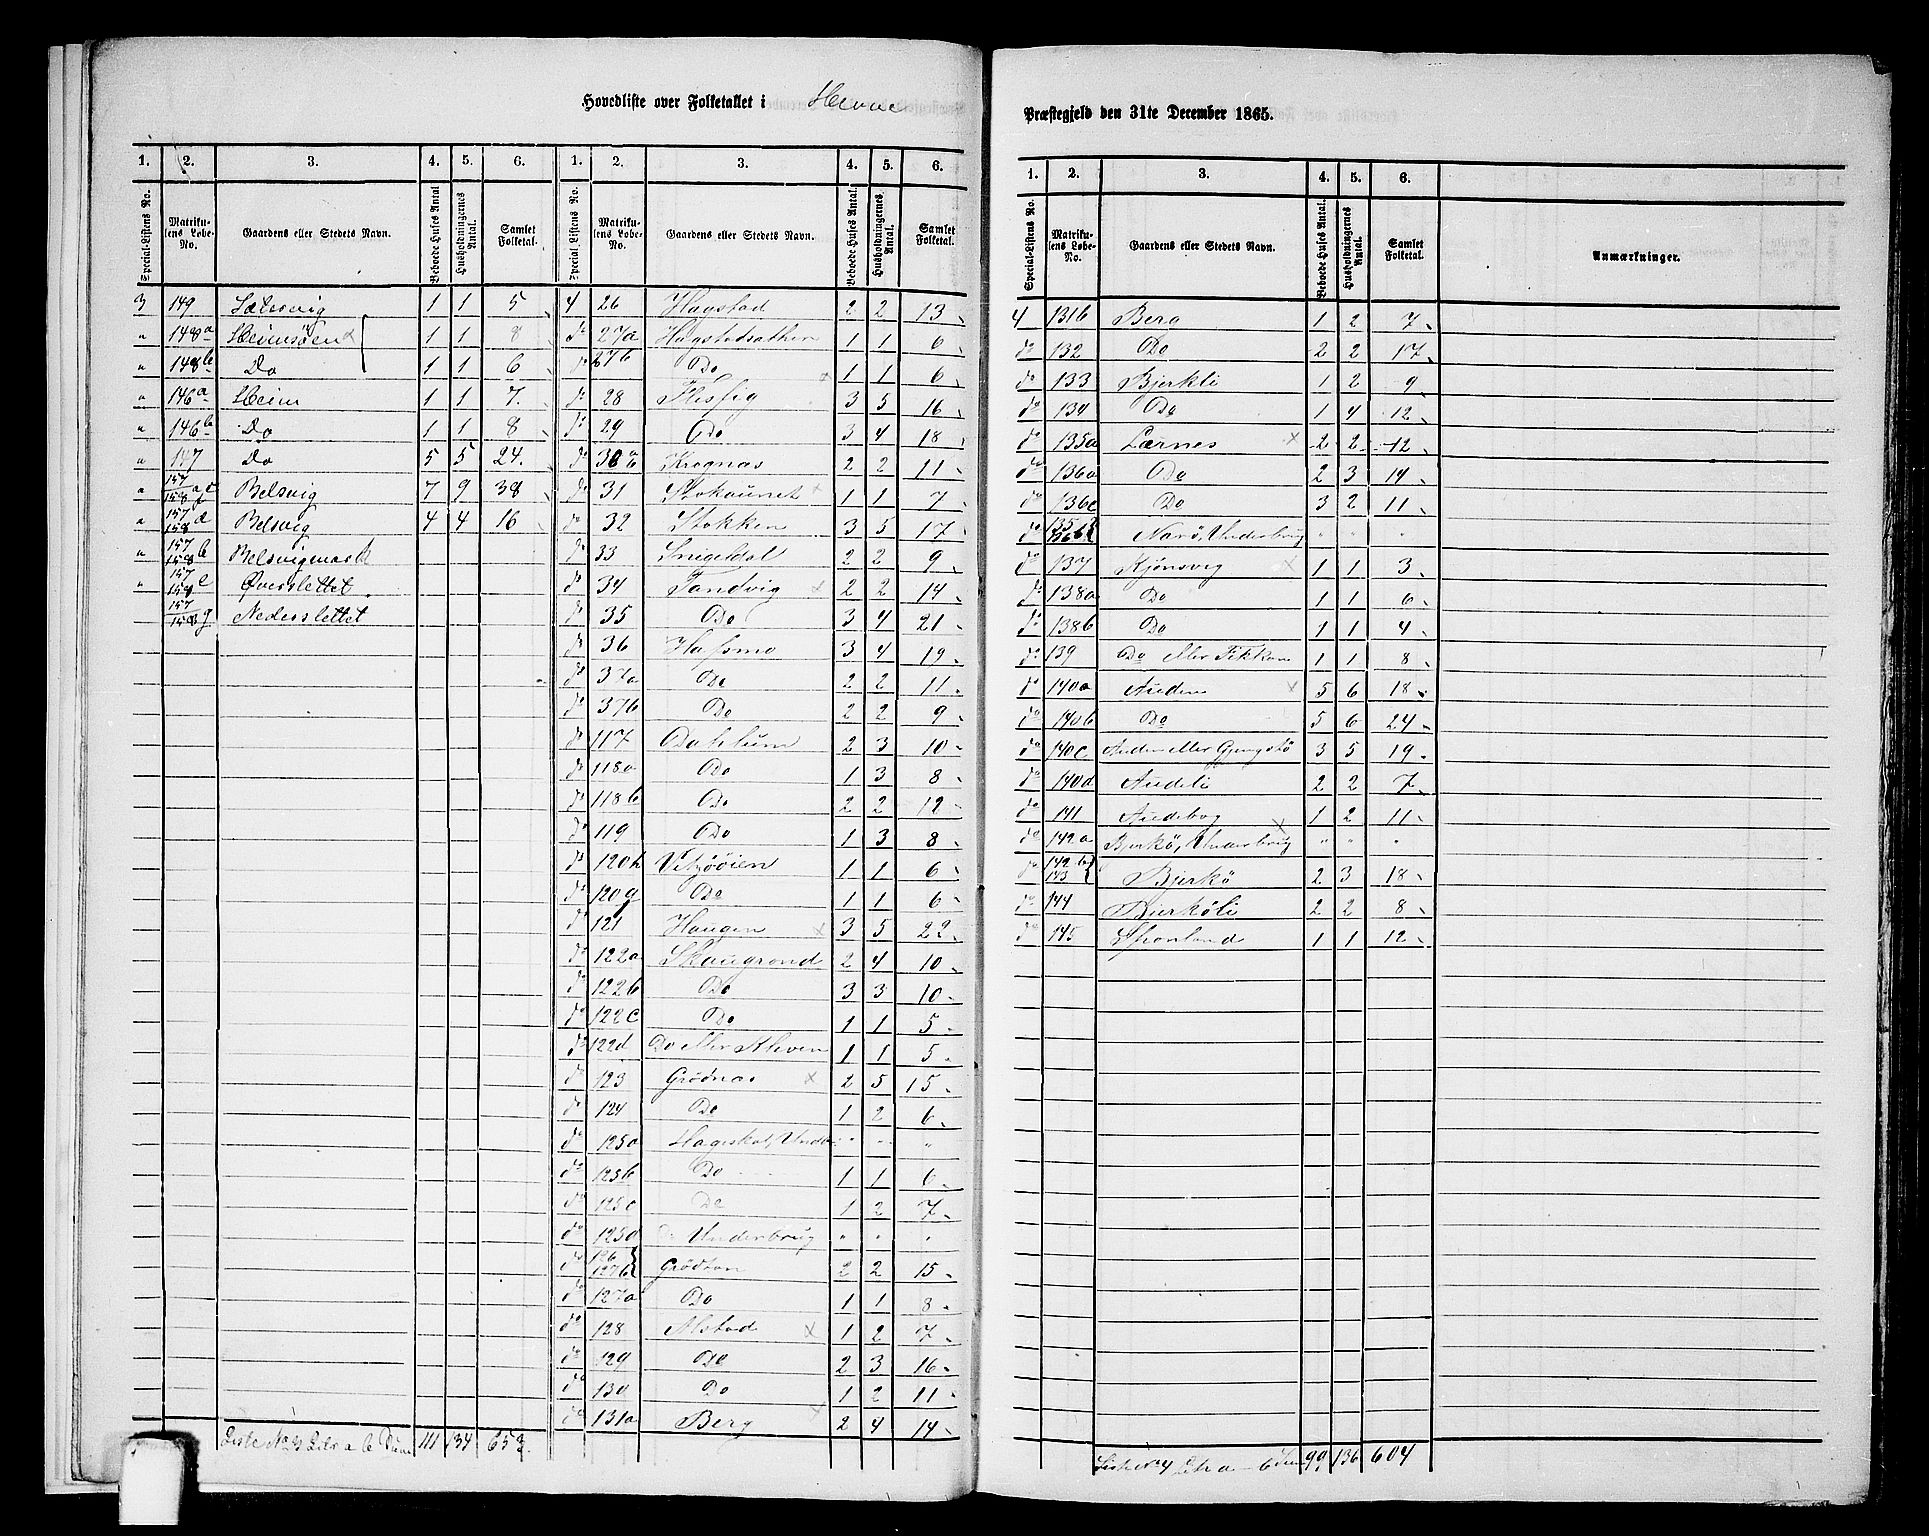 Hovedliste over Folketallet i Hevne
Præstegjeld den 31te December 1865.
1. 2. 3. 4. 5. 6. 1. 2. 3. 4. 5. 6.
Special-Listens No. Matrikulens Løbe-No. Gaardens eller Stedets Navn. Beboede Huses Antal Husholdningernes Antal. Samlet Folketal. Special-Listens No. Matrikulens Løbe-No. Gaardens eller Stedets Navn. Beboede Huses Antal. Husholdningernes Antal. Samlet Folketal.
3 149 1 1 5
" 148a Heimsöen 1 1 8
" 148b Do 1 1 6
" 146a Heim 1 1 7.
" 146b Do 1 1 8
" 147 Do 5 5 24.
" 157 158 Belsvig 7 9 38
" 157 158 d Belsvig 4 4 16
" 157 158 b Belsvigmark
" 157 158 e Øverslettet
157 158 g Nederslettet
Liste No 3 Litr a b Sum 111 134 653.
4 26 Hagstad 2 2 13
do 27a 1 1 6
do 27b Do 1 1 6
do 28 3 5 16
do 29 Do 3 4 18
do 30 Krognæs 2 2 11
do 31 Stokaunet 1 1 7
do 32 Stokken 3 5 17
do 33 Snigeldal 2 2 9
do 34 Sandvig 2 2 14
do 35 Do 3 4 21
do 36 Hafsmo 3 4 19
do 37a Do 2 2 11
do 37b Do 2 2 9
do 117 Dahlum 2 3 10
do 118a Do 1 3 8
do 118b Do 2 2 12
do 119 Do 1 3 8
do 120h Vitsöien 1 1 6
do 120g Do 1 1 6
do 121 Haugen 3 5 22
do 122a Skaugrond 2 4 10
do 122b Do 3 3 10
do 122c Do 1 1 5
do 122d Do eller Kleven 1 1 5
do 123 Grödnæs 2 5 15
do 124 Do 1 2 6
do 125a " " "
do 125b Do 1 1 6
do 125c Do 1 2 7
do 125d Do Underbrug " " "
do 126 127b Grödtan 2 2 15
do 127a Do 1 1 8
do 128 Alstad 1 2 7
do 129 Do 2 3 16
do 130 Do 1 2 11
do 131a Berg 2 4 14
1. 2. 3. 4. 5. 6.
Special-Listens No. Matrikulens Løbe-No. Gaardens eller Stedets Navn. Beboede Huses Antal. Husholdningernes Antal. Samlet Folketal. Anmærkninger.
4 131b Berg 1 2 7
do 132 Do 2 2 17
do 133 Bjerkli 1 2 9
do 134 Do 1 4 12
do 135a Lærnes 2 2 12
do 136a Do 2 3 14
do 136c Do 3 2 11
do 135b 136b Narö, Underbrug " " "
do 137 Kjönsvig 1 1 3
do 138a Do 1 1 6
do 138b Do 1 1 4
do 139 Do eller 1 1 8
do 140a Auden 5 6 18
do 140b Do 5 6 24
do 140c Auden eller 3 5 19
do 140d Audeli 2 2 7
do 141 Audebog 1 2 11
do 142a Bjerkö, Underbrug " " "
do 142b 143 Bjerkö 2 3 18
do 144 Bjerköli 2 2 8
do 145 1 1 12
Liste No 4 Litr a - b Sum 99 136 604